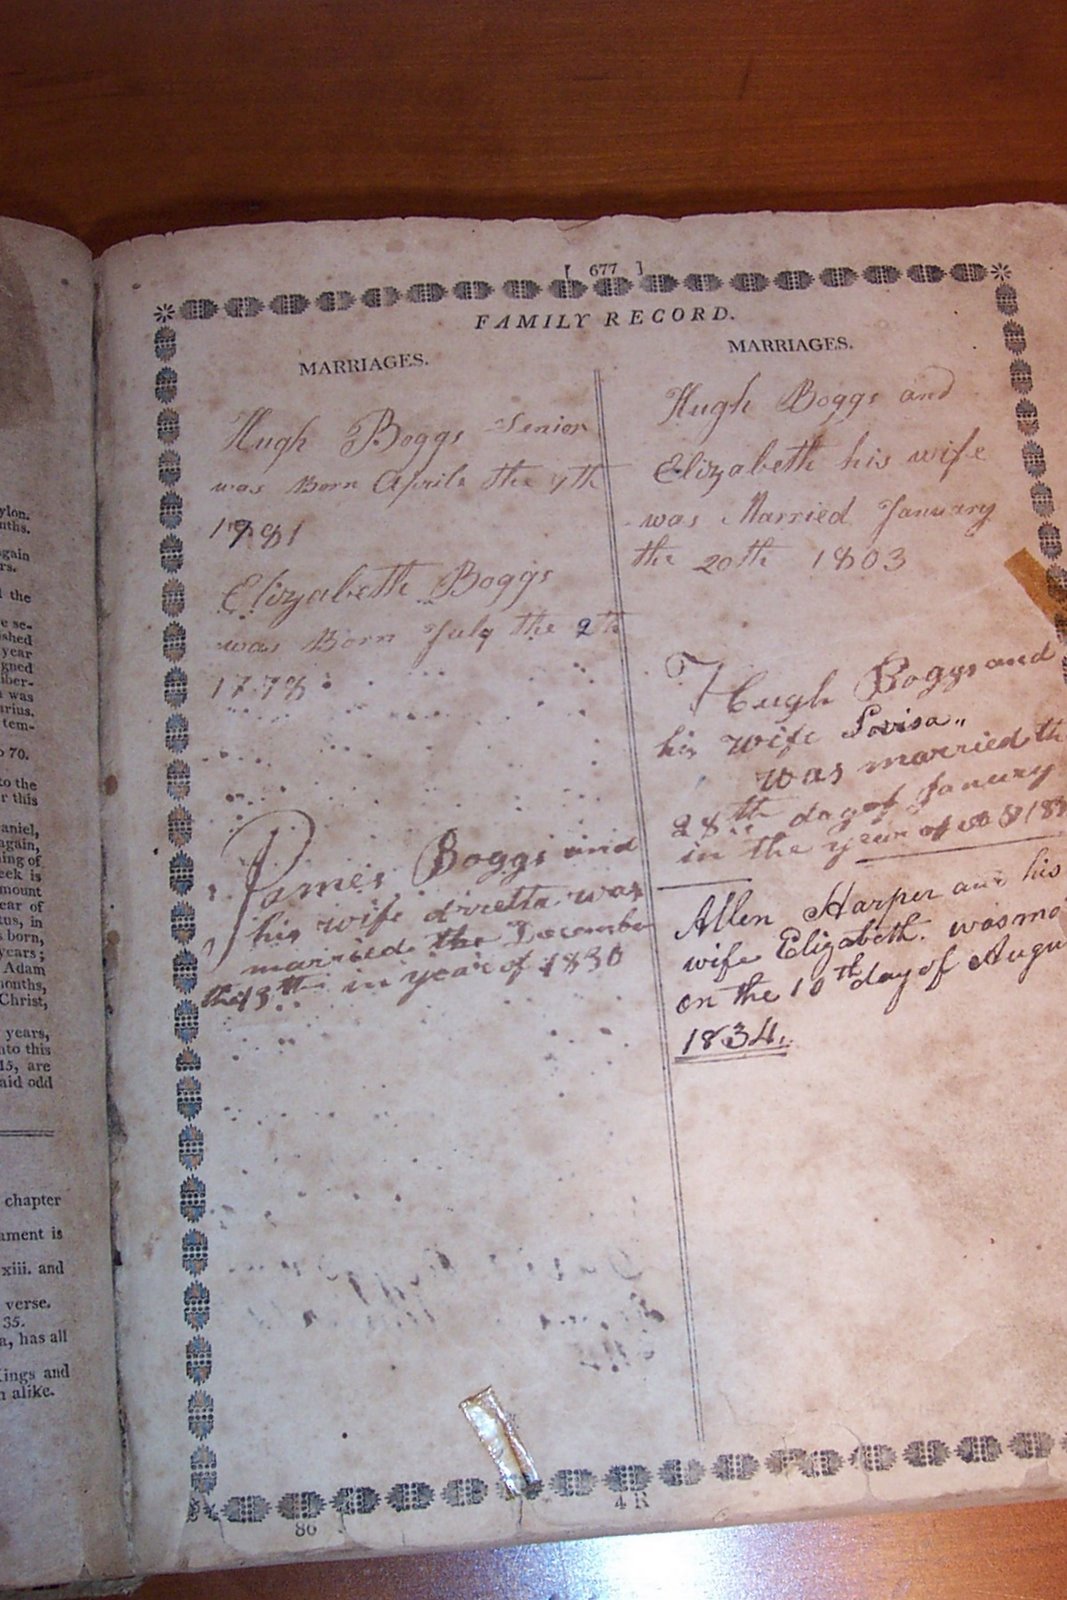 ylon.
nths.
gain
rs.
l the
e se-
ished
year
gned
iber-
was
arius.
tem-
70.
to the
r this
aniel,
again,
ning of
eek is
mount
ear of
tus, in
born,
years;
Adam
months,
Christ,
years,
nto this
15, are
said odd
chapter
ament is
xiii. and
verse.
35.
a, has all
Kings and
alike.
[ 677 ]
FAMILY RECORD.
MARRIAGES.
Hugh Boggs Senior
was Born Aprile the 7th
1781
Elizabeth Boggs
was Born July the 2th
1778
James Boggs and
his wife was
married the December
the 13th in year of 1830
MARRIAGES.
Hugh Boggs and
Elizabeth his wife
was Married January
the 20th 1803
Hugh Boggs and
his wife Lovisa
was married th
28th day of January
in the year of
Allen Harper and his
wife Elizabeth. was ma
on the 10th day of Augu
1834.
86
4 R